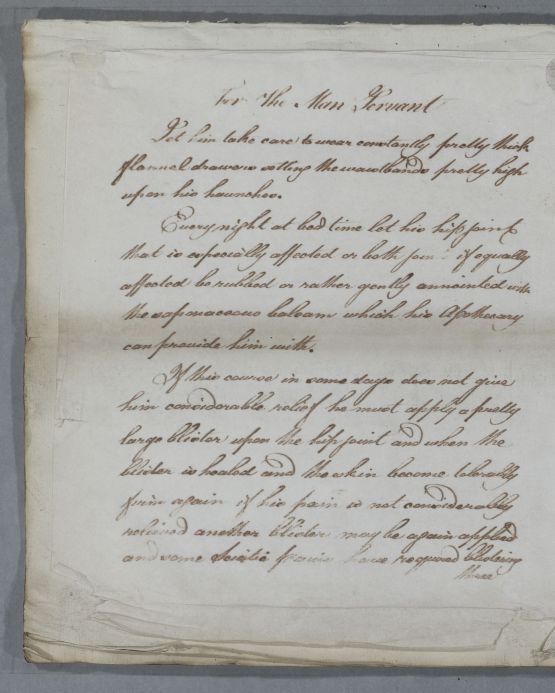 For the Man Servant
Let him take care to wear constantly pretty thick
flannel drawers setting the wastbands pretty high
upon his haunches.
Every night at bed time let his hip joint
that is especially affected or both joints if equally
affected be rubbed or rather gently annointed with
the saponaceous balsam which his Apothecary
can provide him with.
If this course in some days does not give
him considerable relief he must apply a pretty
large blister upon the hip joint and when the
blister is healed and the skin become tolerably
firm again if his pain is not considerably
relieved another blister may be again applied
and some Sciatic pains have required blistering
three